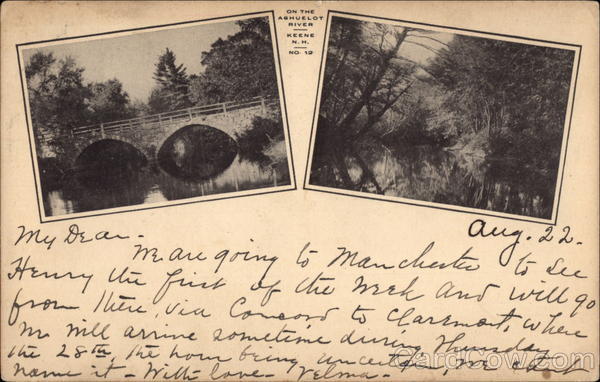 ON THE
ASHUELOT
RIVER
KEENE
N.H.
NO. 12
Aug. 22.
My Dear -
We are going to Manchester to see
Henry the first of the week and will go
from there, via Concord to Claremont, where
we will arrive sometime during Thursday
the 28th, the hour being uncertain, we can't
name it - With love - Velma -
CardCow.com